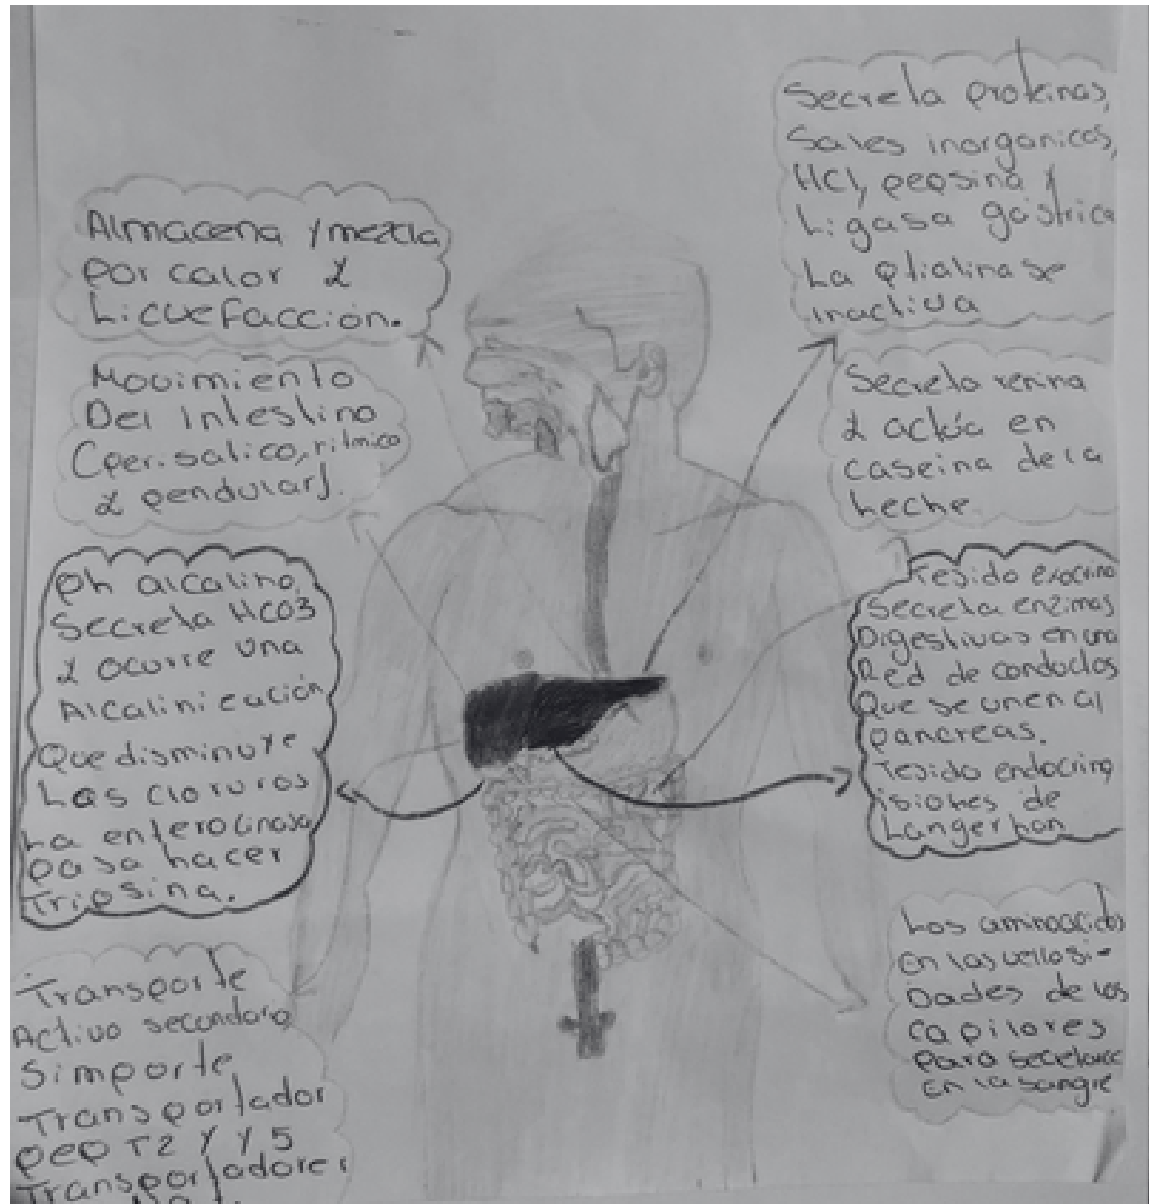 Almacena y mezcla
por calor y
Licuefacción.
Movimiento
Del Intestino
(perisalico, ritmico
y pendular).
Ph alcalino,
Secreta HCO3
y ocurre una
Alcalinización
Que disminuye
Las cloruros
La enterocinasa
pasa hacer
Tripsina.
Transporte
Activo secundario
Simporte,
Transportador
pep T2 y Y 5
Transportadores
Secreta proteinas,
Sales inorganicas,
HCl, pepsina y
Ligasa gástrica
La ptialina se
inactiva
Secreta renina
y actúa en
caseina de la
Leche.
Tejido exocrino
Secreta enzimas
Digestivas en una
Red de conductos
Que se unen al
pancreas.
Tejido endocrino
islones de
Langerhan
Los aminoacidos
En las vellosi-
Dades de los
capilares
Para secretarse
En la sangre